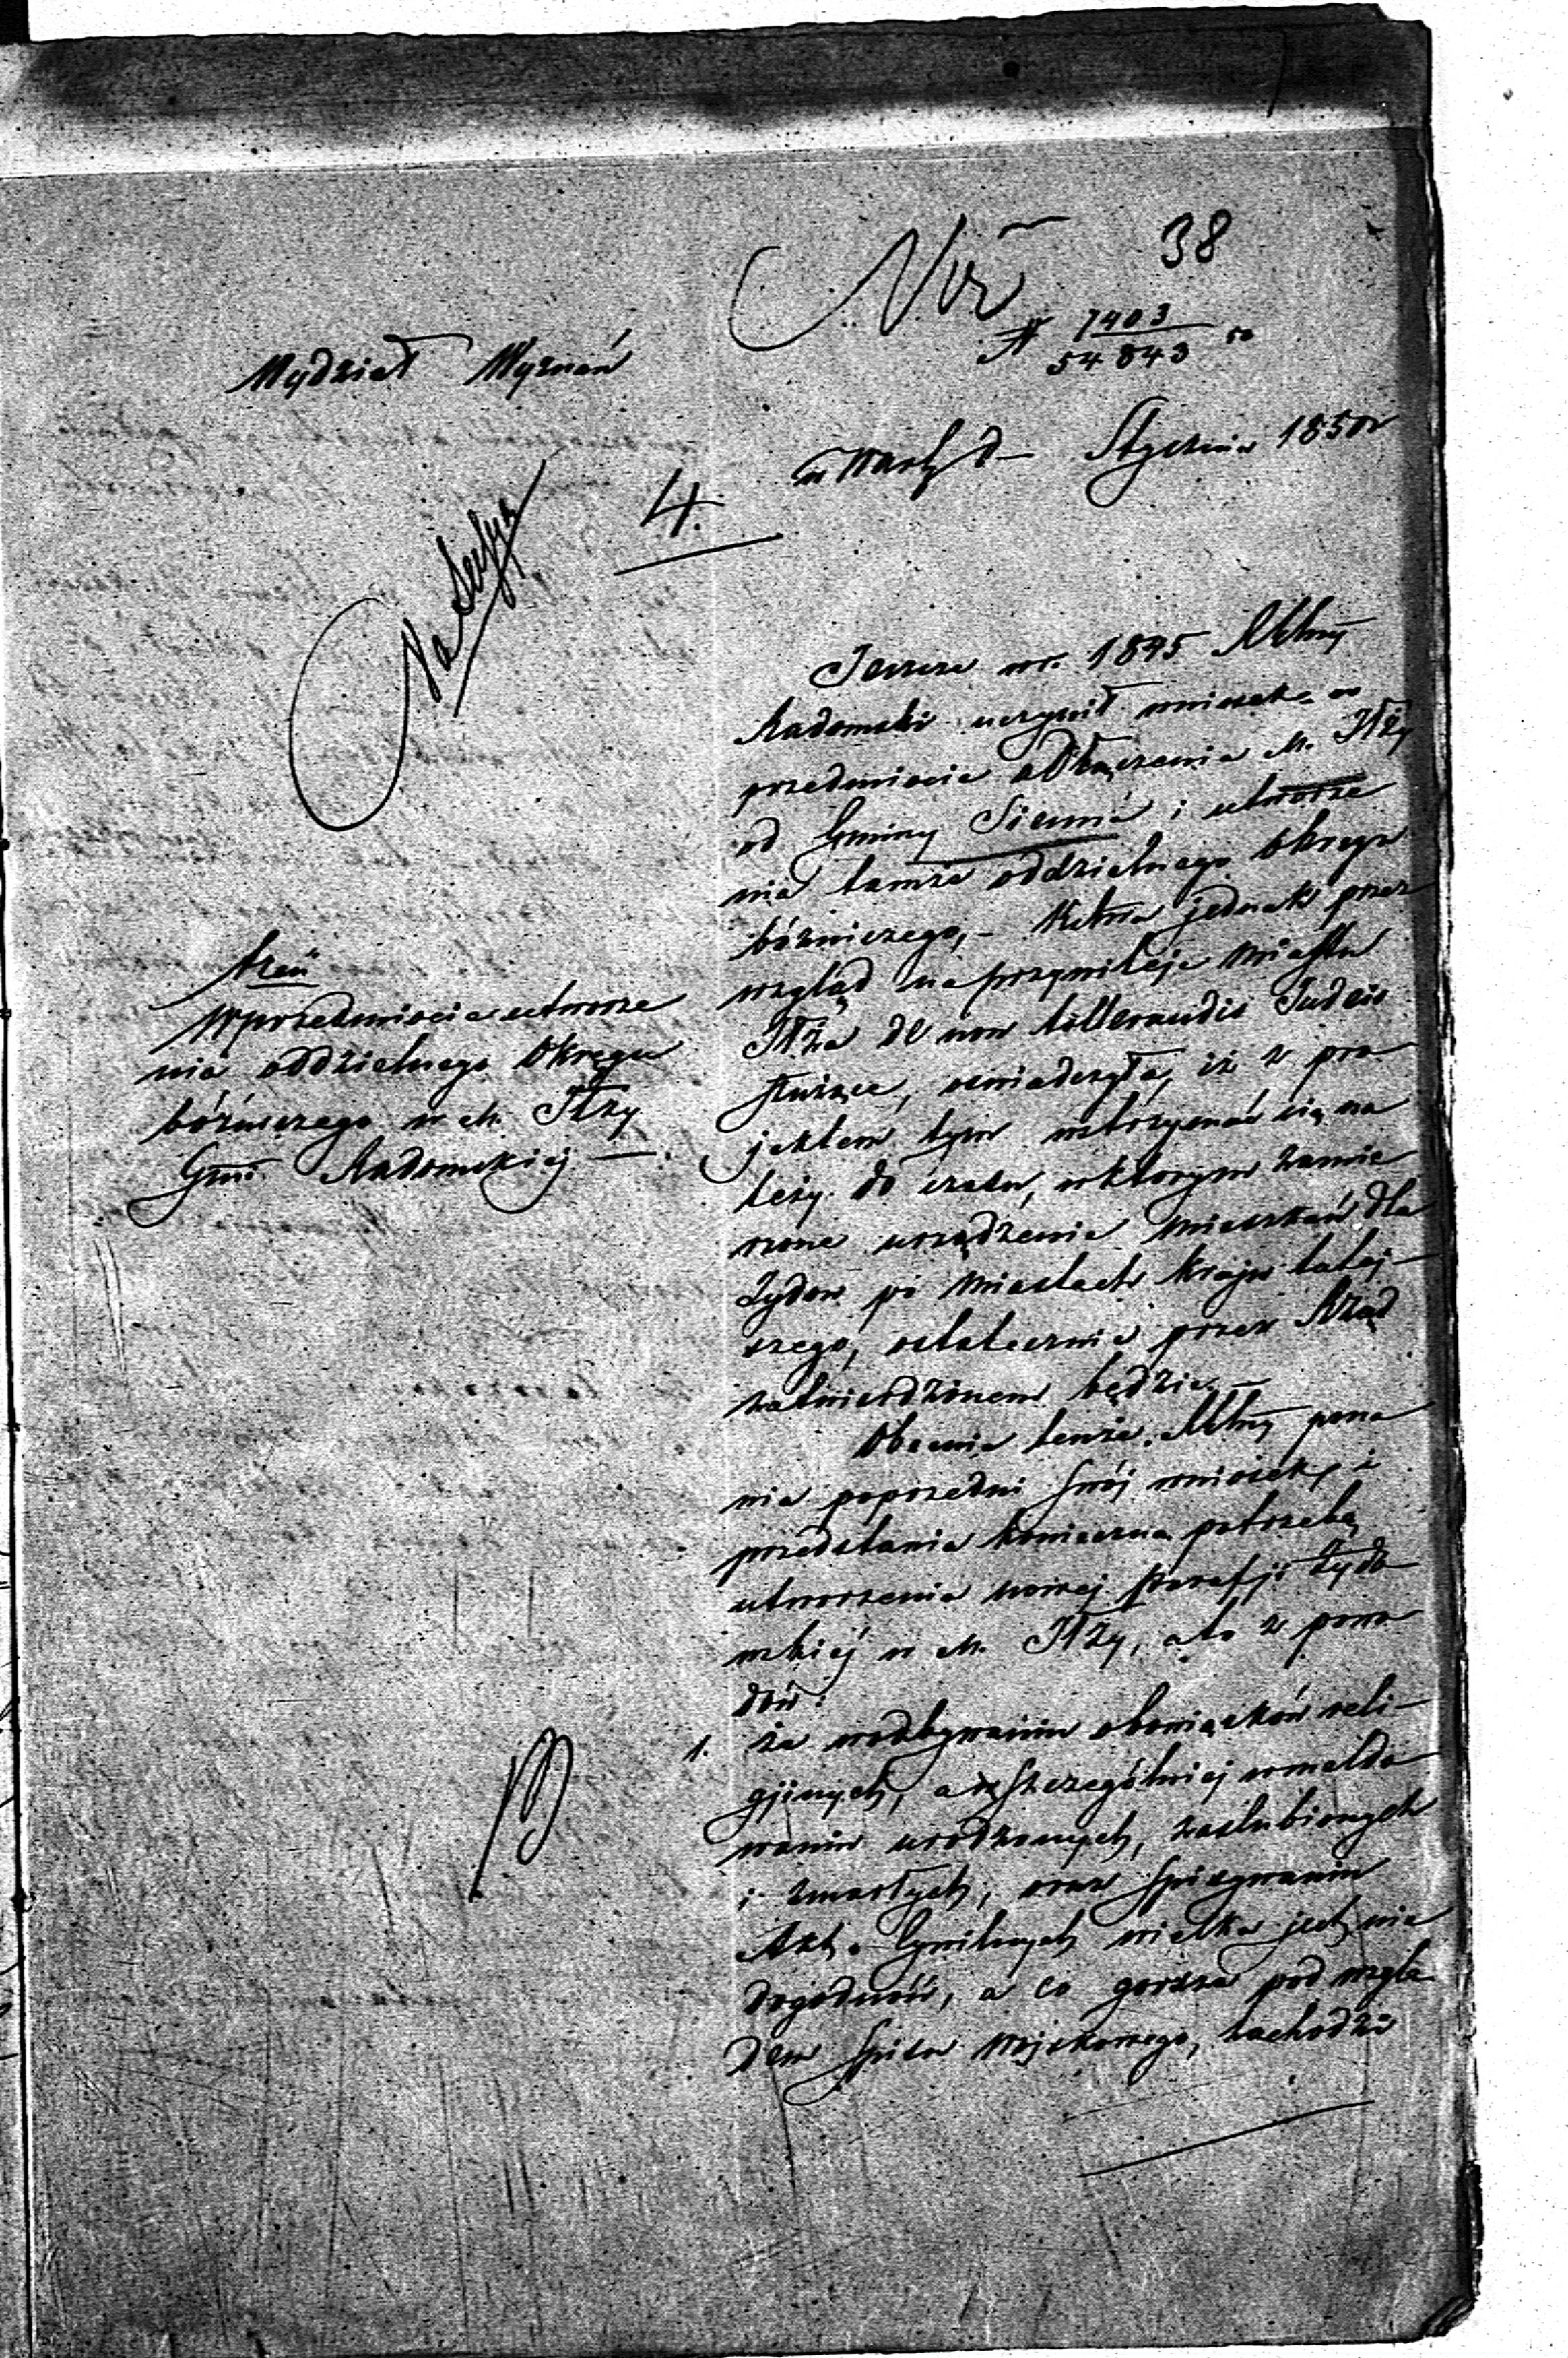 38
N 7403
54843
Wydział Wyznań
w Warsz d – Stycznia 1850 r
4.
Na Sessyą
Jeszcze w r. 1845
Radomski uczynił wniosek w
przedmiocie odłączenia M. Iłży
od Gminy Sienna i utworze
nia tamże oddzielnego Okręgu
bóżniczego, – która jednak przez
wzgląd na przywileje miastu
Iłża de non tollerandis Judeis
służące, oświadczyła, iż z pro
jektem tym wstrzymać się na
leży do czasu, w którym zamie
rzone urządzenie mieszkań dla
Żydów po miastach Kraju tutej–
szego, ostatecznie przez Rząd
zatwierdzonem będzie. –
Obecnie tenże pona
wia poprzedni swój wniosek, i
przedstawia konieczną potrzebę
utworzenia nowej parafji Żydo
wskiéj w M. Iłży, a to z powo
dów:
1. że w odbywaniu obowiązków reli–
gijnych, a w szczególniej w meldo
waniu urodzonych, zaślubionych
i zmarłych, oraz spisywaniu
Akt Cywilnych wielka jest nie
dogodność, a co gorsza pod wzglę
dem spisu wojskowego, zachodzi
W przedmiocie utworze
nia oddzielnego Okręgu
bóżniczego w M. Iłży
Gnii Radomskiej –